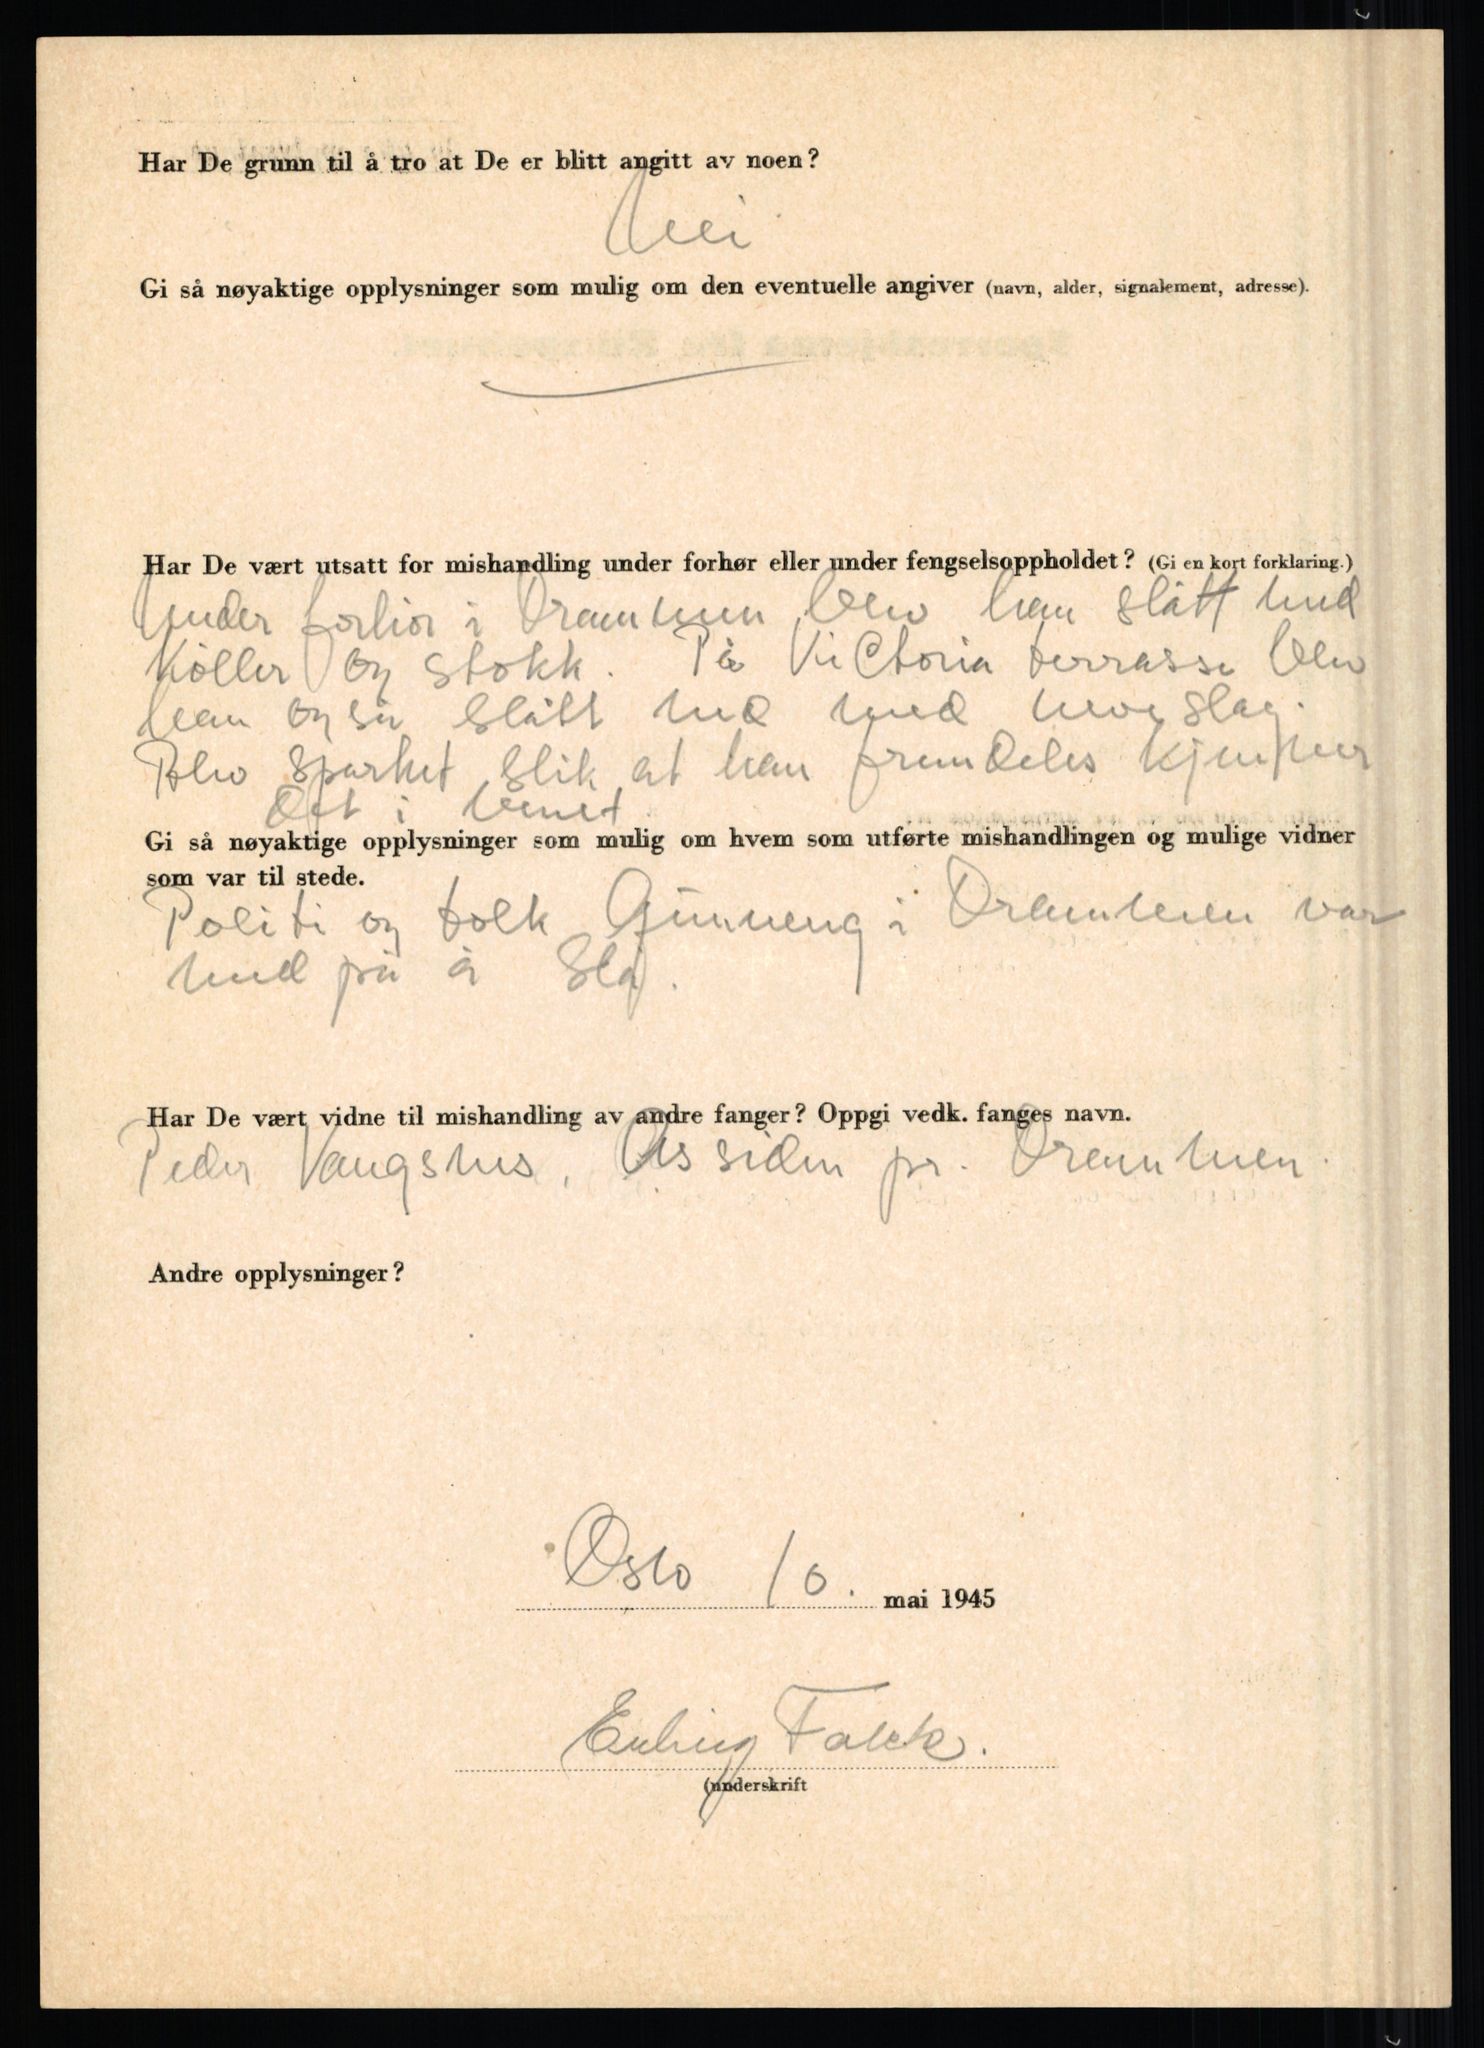 Har De grunn til å tro at De er blitt angitt av noen?
Nei
Gi så nøyaktige opplysninger som mulig om den eventuelle angiver (navn, alder, signalement, adresse).
Har De vært utsatt for mishandling under forhør eller under fengselsoppholdet? (Gi en kort forklaring.)
Under forhør i Drammen blev han slått med
køller og stokk. På Victoria terrasse blev
han også slått med neveslag.
Blev sparket slik at han fremdeles kjenner
det i benet
Gi så nøyaktige opplysninger som mulig om hvem som utførte mishandlingen og mulige vidner
som var til stede.
Politi og tolk i Drammen var
med på å slå.
Har De vært vidne til mishandling av andre fanger? Oppgi vedk. fanges navn.
Peder Vangsnes, Åssiden pr. Drammen.
Andre opplysninger?
Oslo 10. mai 1945
Erling Falck.
(underskrift